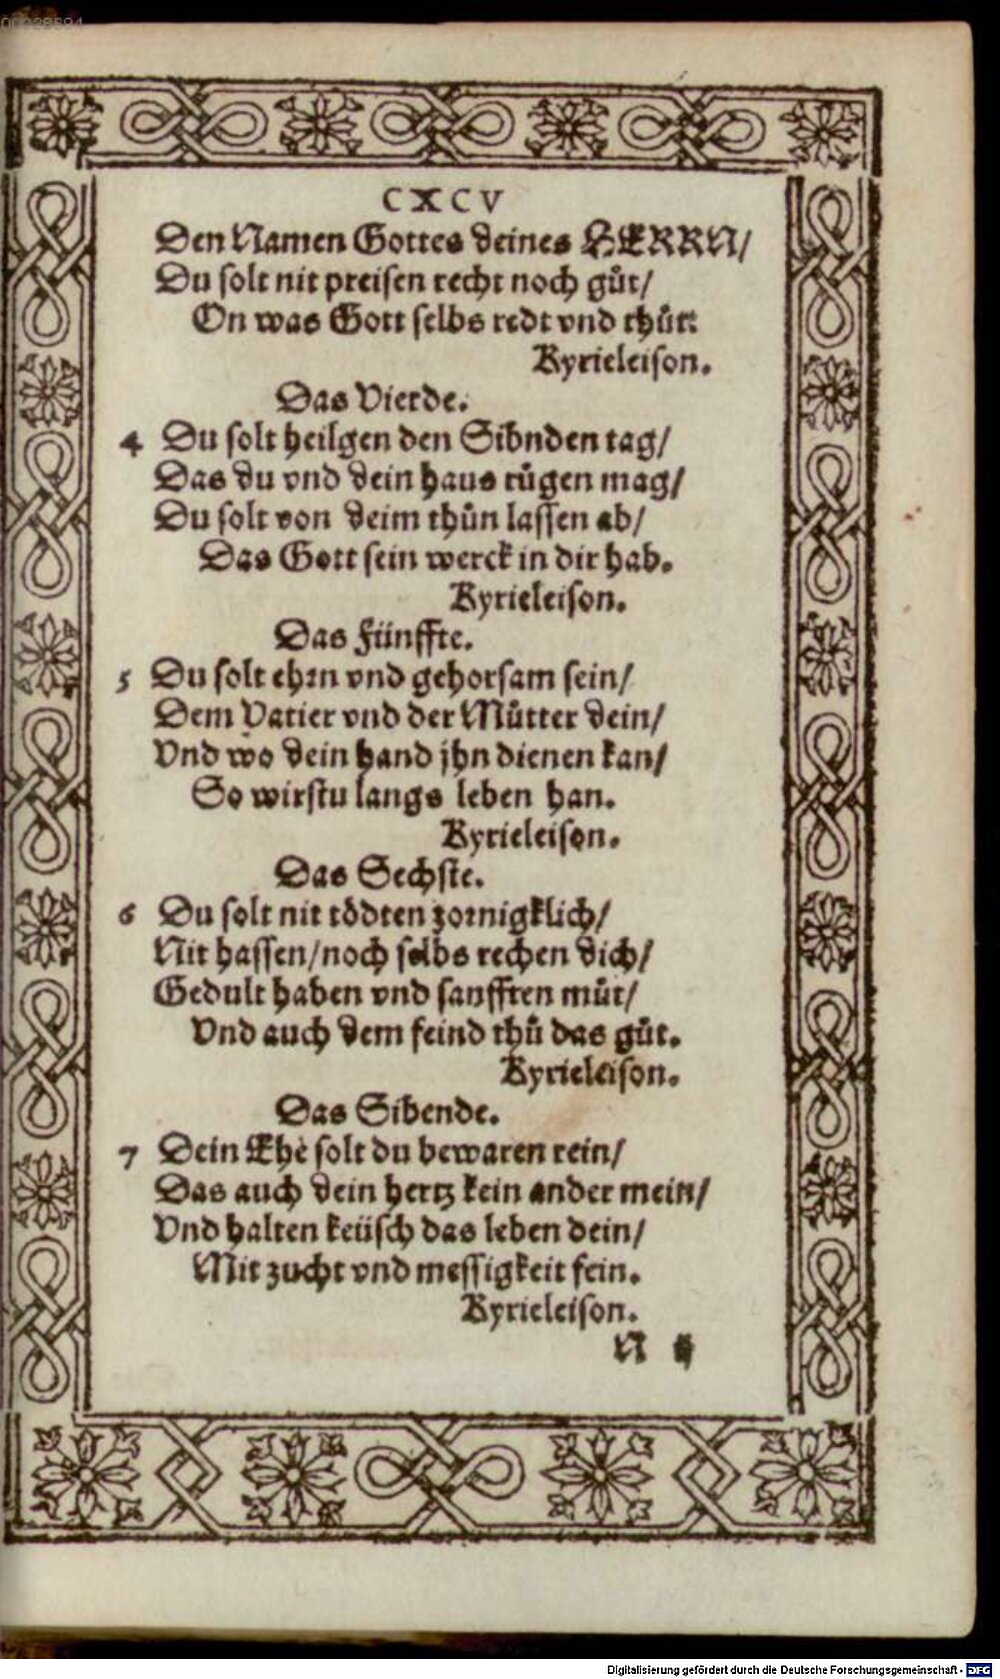 00028694
CXCV
Den Namen Gottes deines HERRN/
Du solt nit preisen recht noch gůt/
On was Gott selbs redt vnd thůt:
Kyrieleison.
Das Vierde.
4 Du solt heilgen den Sibnden tag/
Das du vnd dein haus růgen mag/
Du solt von deim thůn lassen ab/
Das Gott sein werck in dir hab.
Kyrieleison.
Das Fünffte.
5 Du solt ehrn vnd gehorsam sein/
Dem Vatter vnd der Můtter dein/
Vnd wo dein hand jhn dienen kan/
So wirstu langs leben han.
Kyrieleison.
Das Sechste.
6 Du solt nit tödten zornigklich/
Nit hassen/noch selbs rechen dich/
Gedult haben vnd sanfften můt/
Vnd auch dem feind thů das gůt.
Kyrieleison.
Das Sibende.
7 Dein Ehe solt du bewaren rein/
Das auch dein hertz kein ander mein/
Vnd halten keüsch das leben dein/
Mit zucht vnd messigkeit fein.
Kyrieleison.
N ij
Digitalisierung gefördert durch die Deutsche Forschungsgemeinschaft - DFG